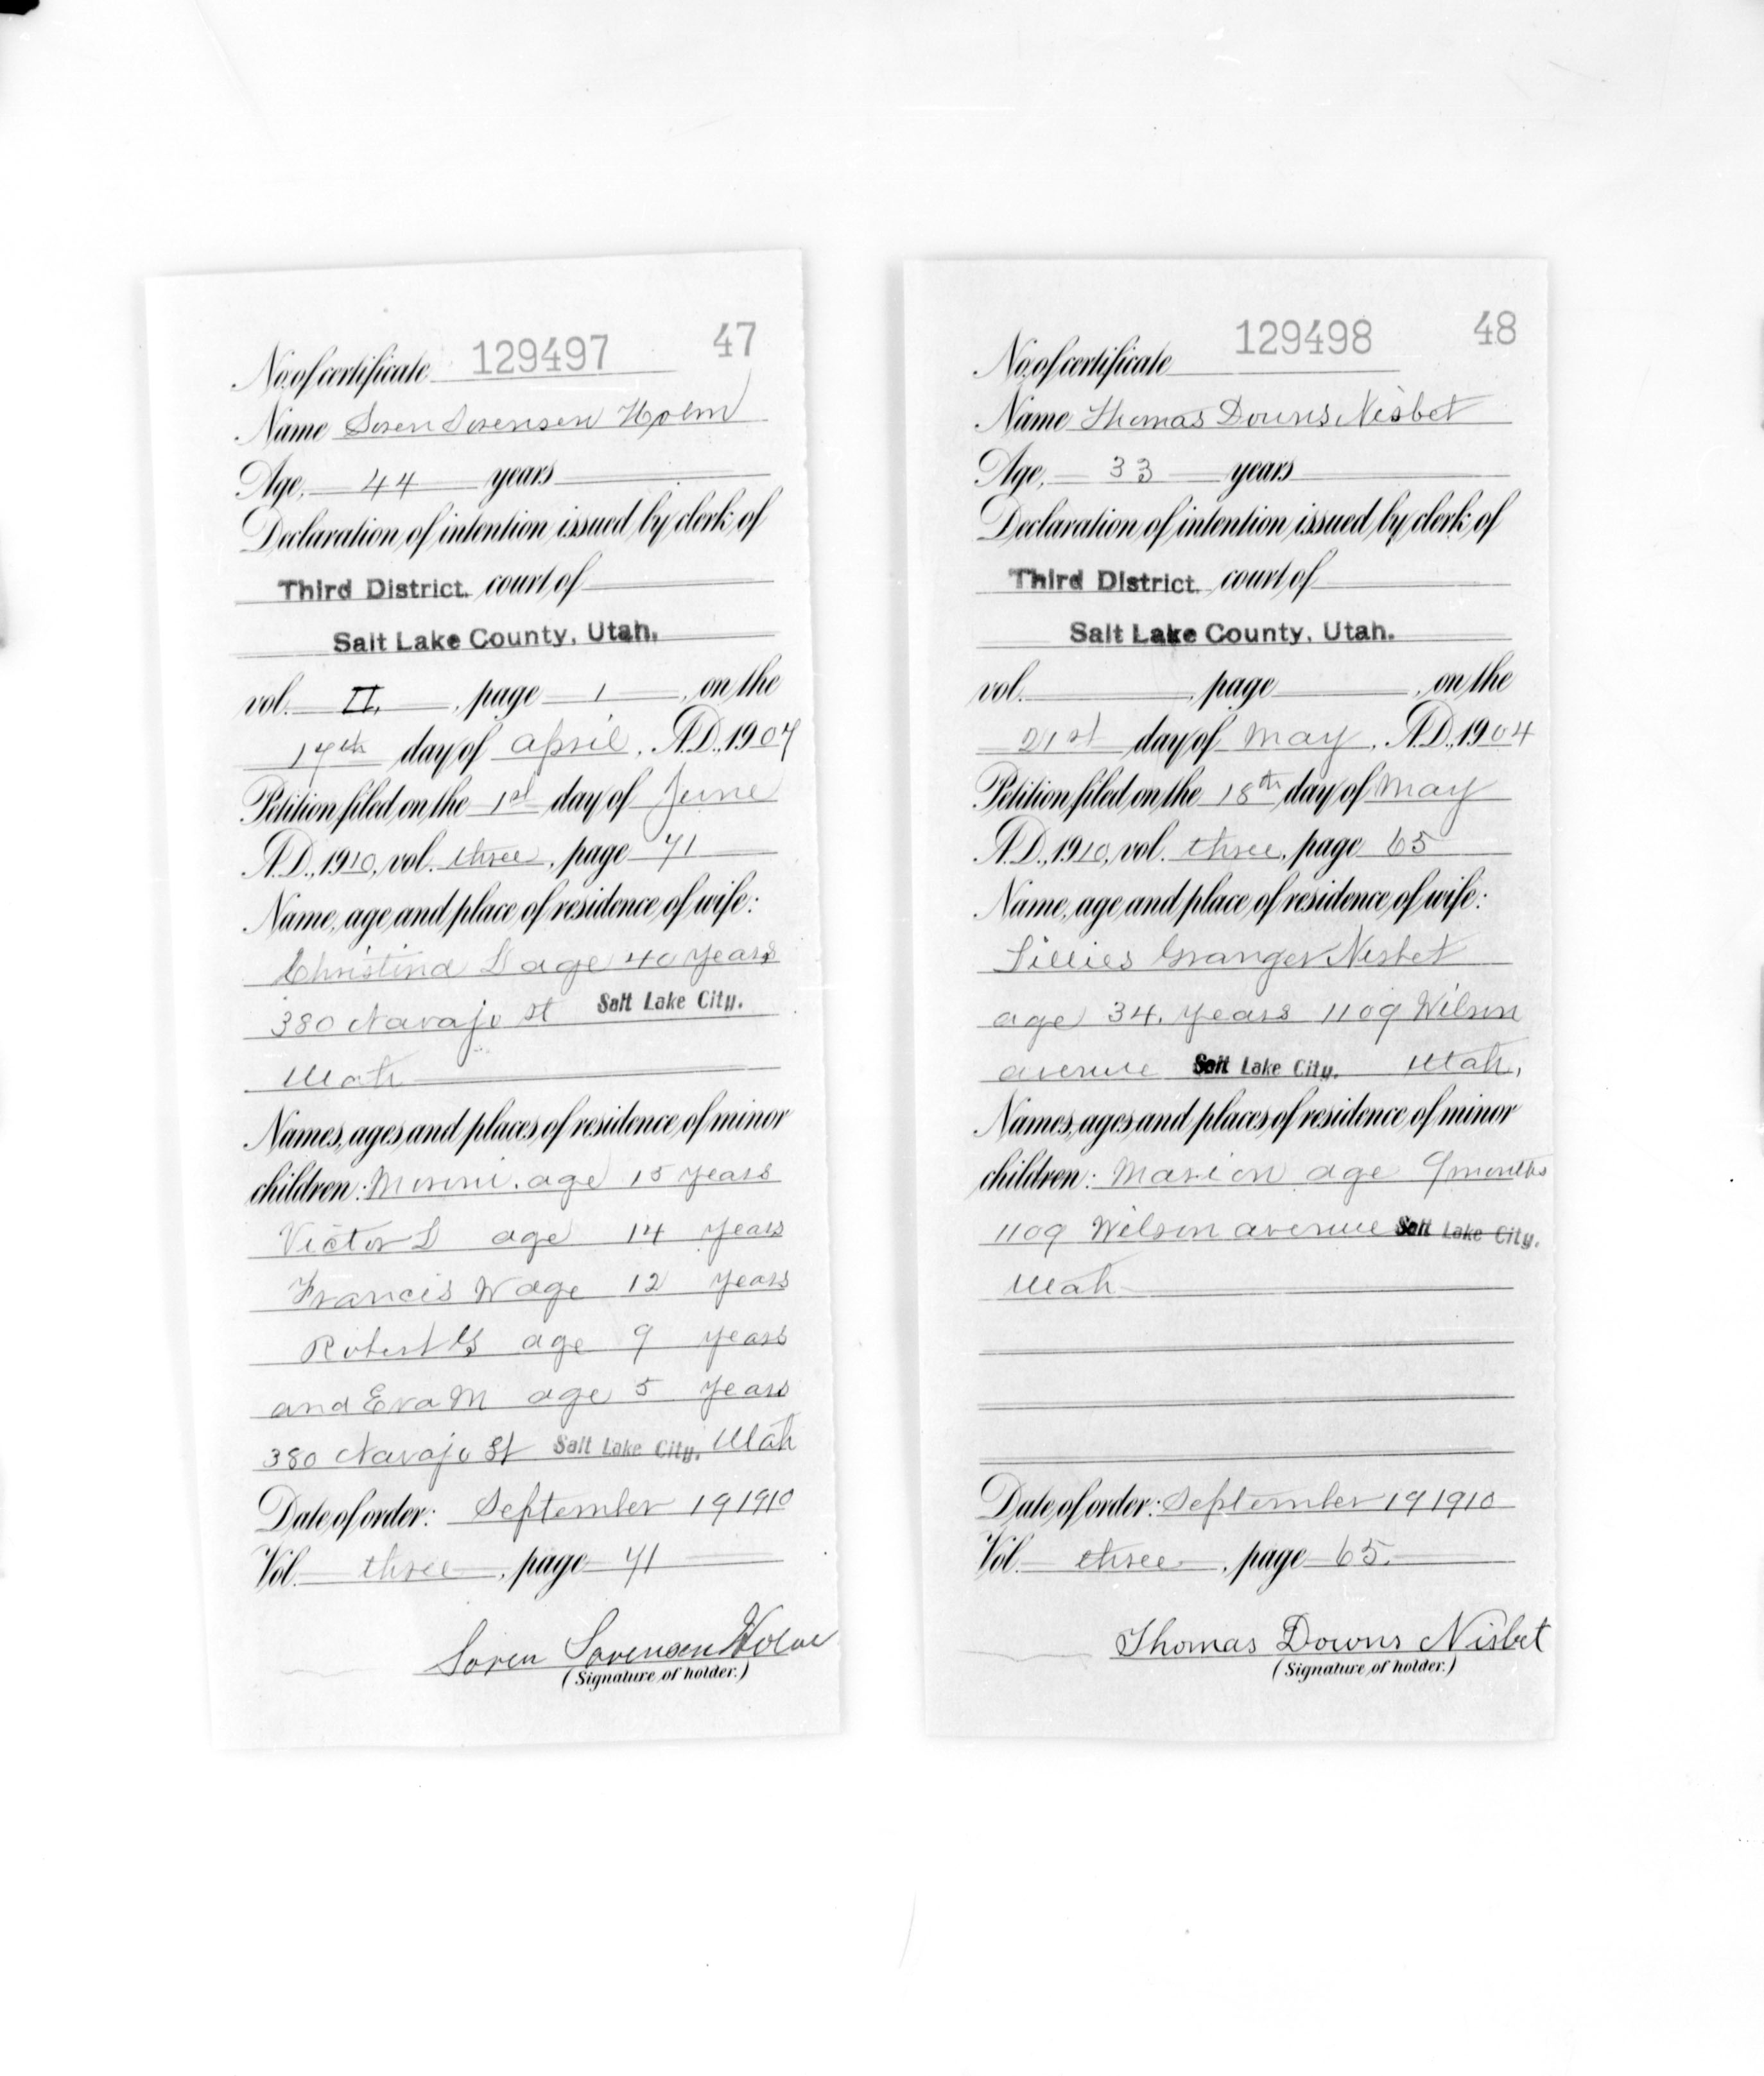 No. of certificate 129497 47
Name Soren Sorensen Holm
Age, 44 years
Declaration of intention issued by clerk of
Third District. court of
Salt Lake County, Utah.
vol. II, page 1, on the
17th day of april, A.D., 1907
Petition filed on the 1st day of June
A.D., 1910, vol. three, page 71
Name, age and place of residence of wife:
Christina L age 40 years
380 Navajo st Salt Lake City.
Utah
Names, ages and places of residence of minor
children: age 15 years
Victor L age 14 years
Francis W age 12 years
Robert G age 9 years
and Eva M age 5 years
380 Navajo St Salt Lake City. Utah
Date of order: September 19 1910
Vol. three, page 71
Soren Sorensen Holm
(Signature of holder.)
No. of certificate 129498 48
Name Thomas Downs Nisbet
Age, 33 years
Declaration of intention issued by clerk of
Third District. court of
Salt Lake County, Utah.
vol. , page , on the
21st day of may, A.D., 1904
Petition filed on the 18th day of May
A.D., 1910, vol. three, page 65
Name, age and place of residence of wife:
Granger Nisbet
age 34. years 1109 Wilson
avenue Salt Lake City. Utah,
Names, ages and places of residence of minor
children: Marion age 9 months
1109 Wilson avenue Salt Lake City.
Utah
Date of order: September 19 1910
Vol. three, page 65.
Thomas Downs Nisbet
(Signature of holder.)